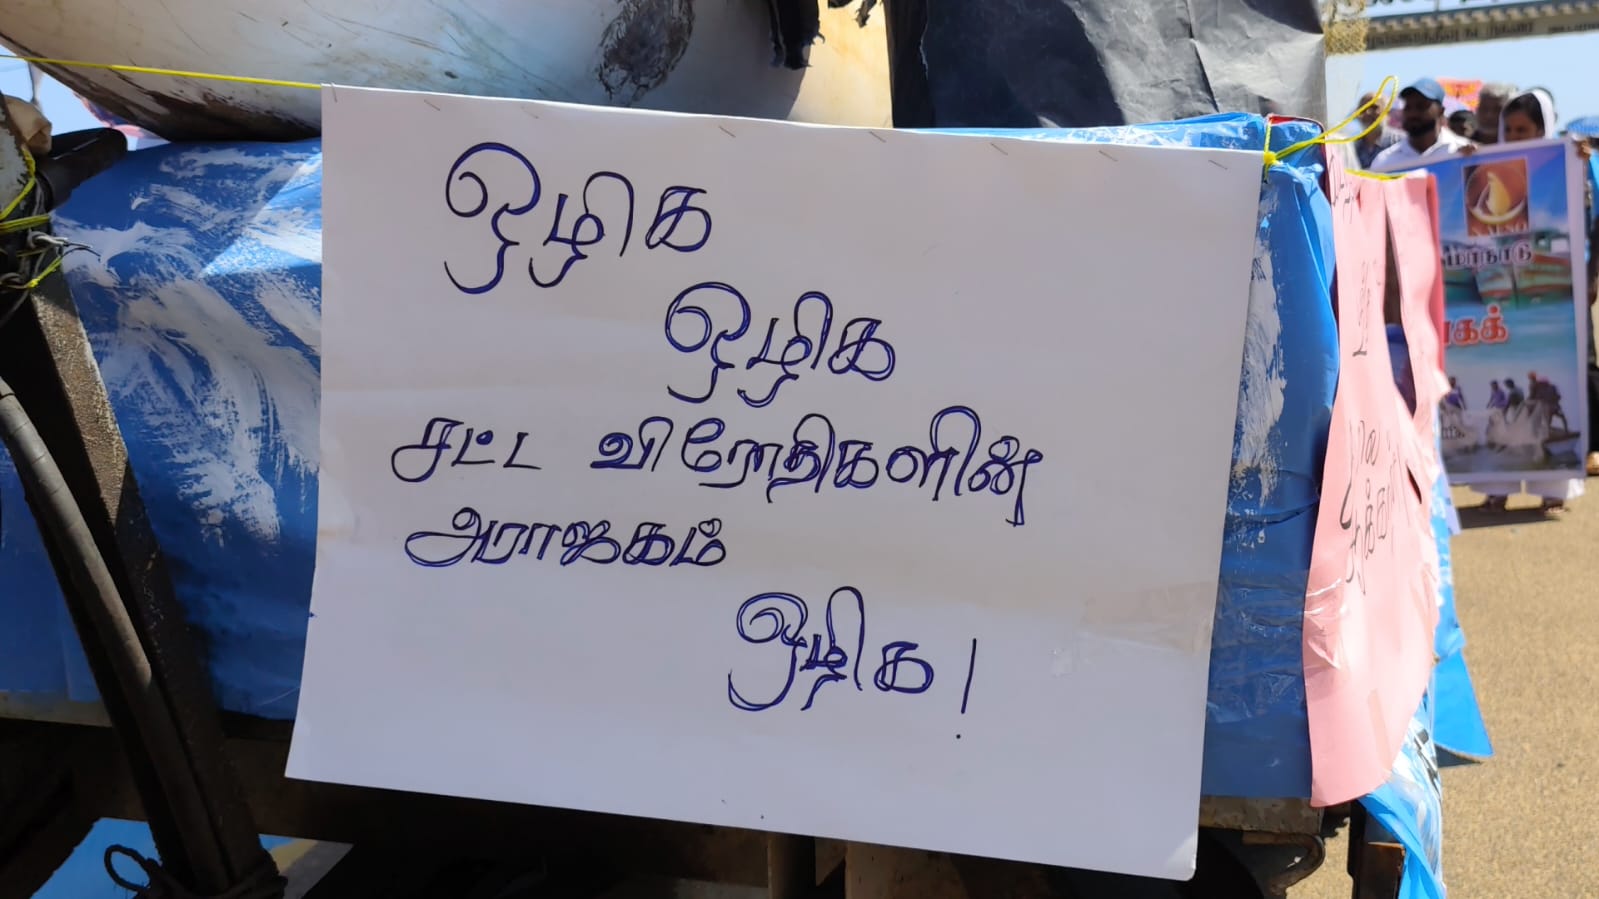 ஒழிக
ஒழிக
சட்ட விரோதிகளின்
அராஜகம்
ஒழிக!